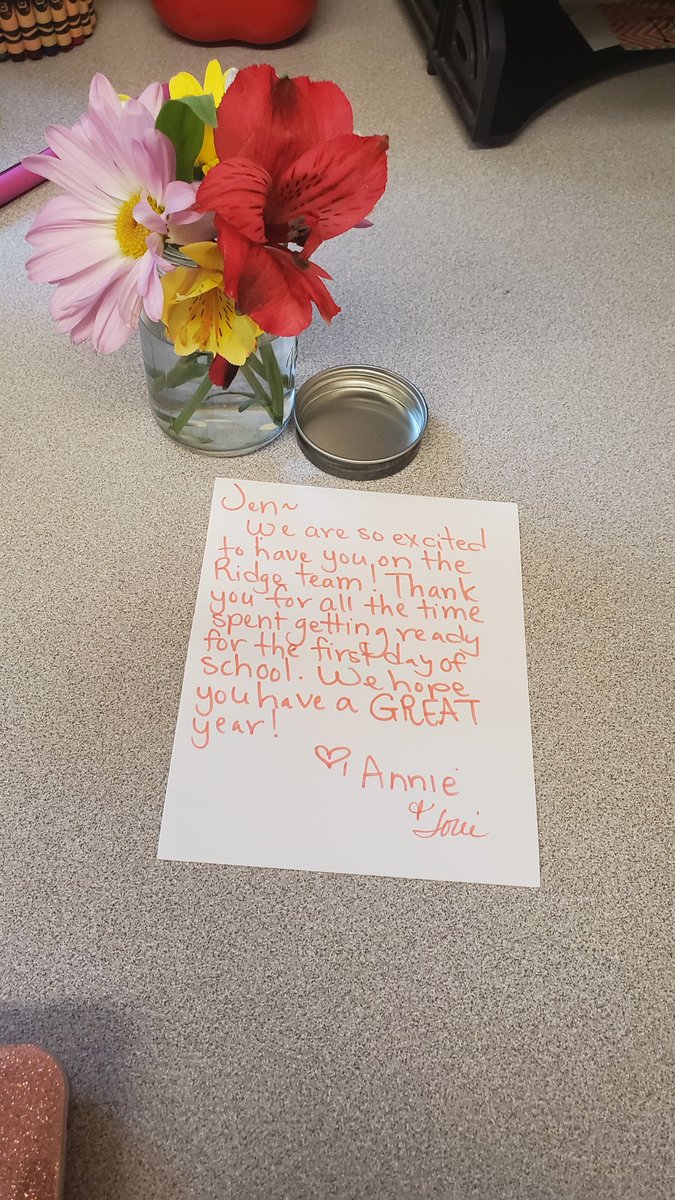 Jen~
We are so excited
to have you on the
Ridge team! Thank
you for all the time
spent getting ready
for the first day of
school. We hope
you have a GREAT
year!
♡, Annie
&
Lorie